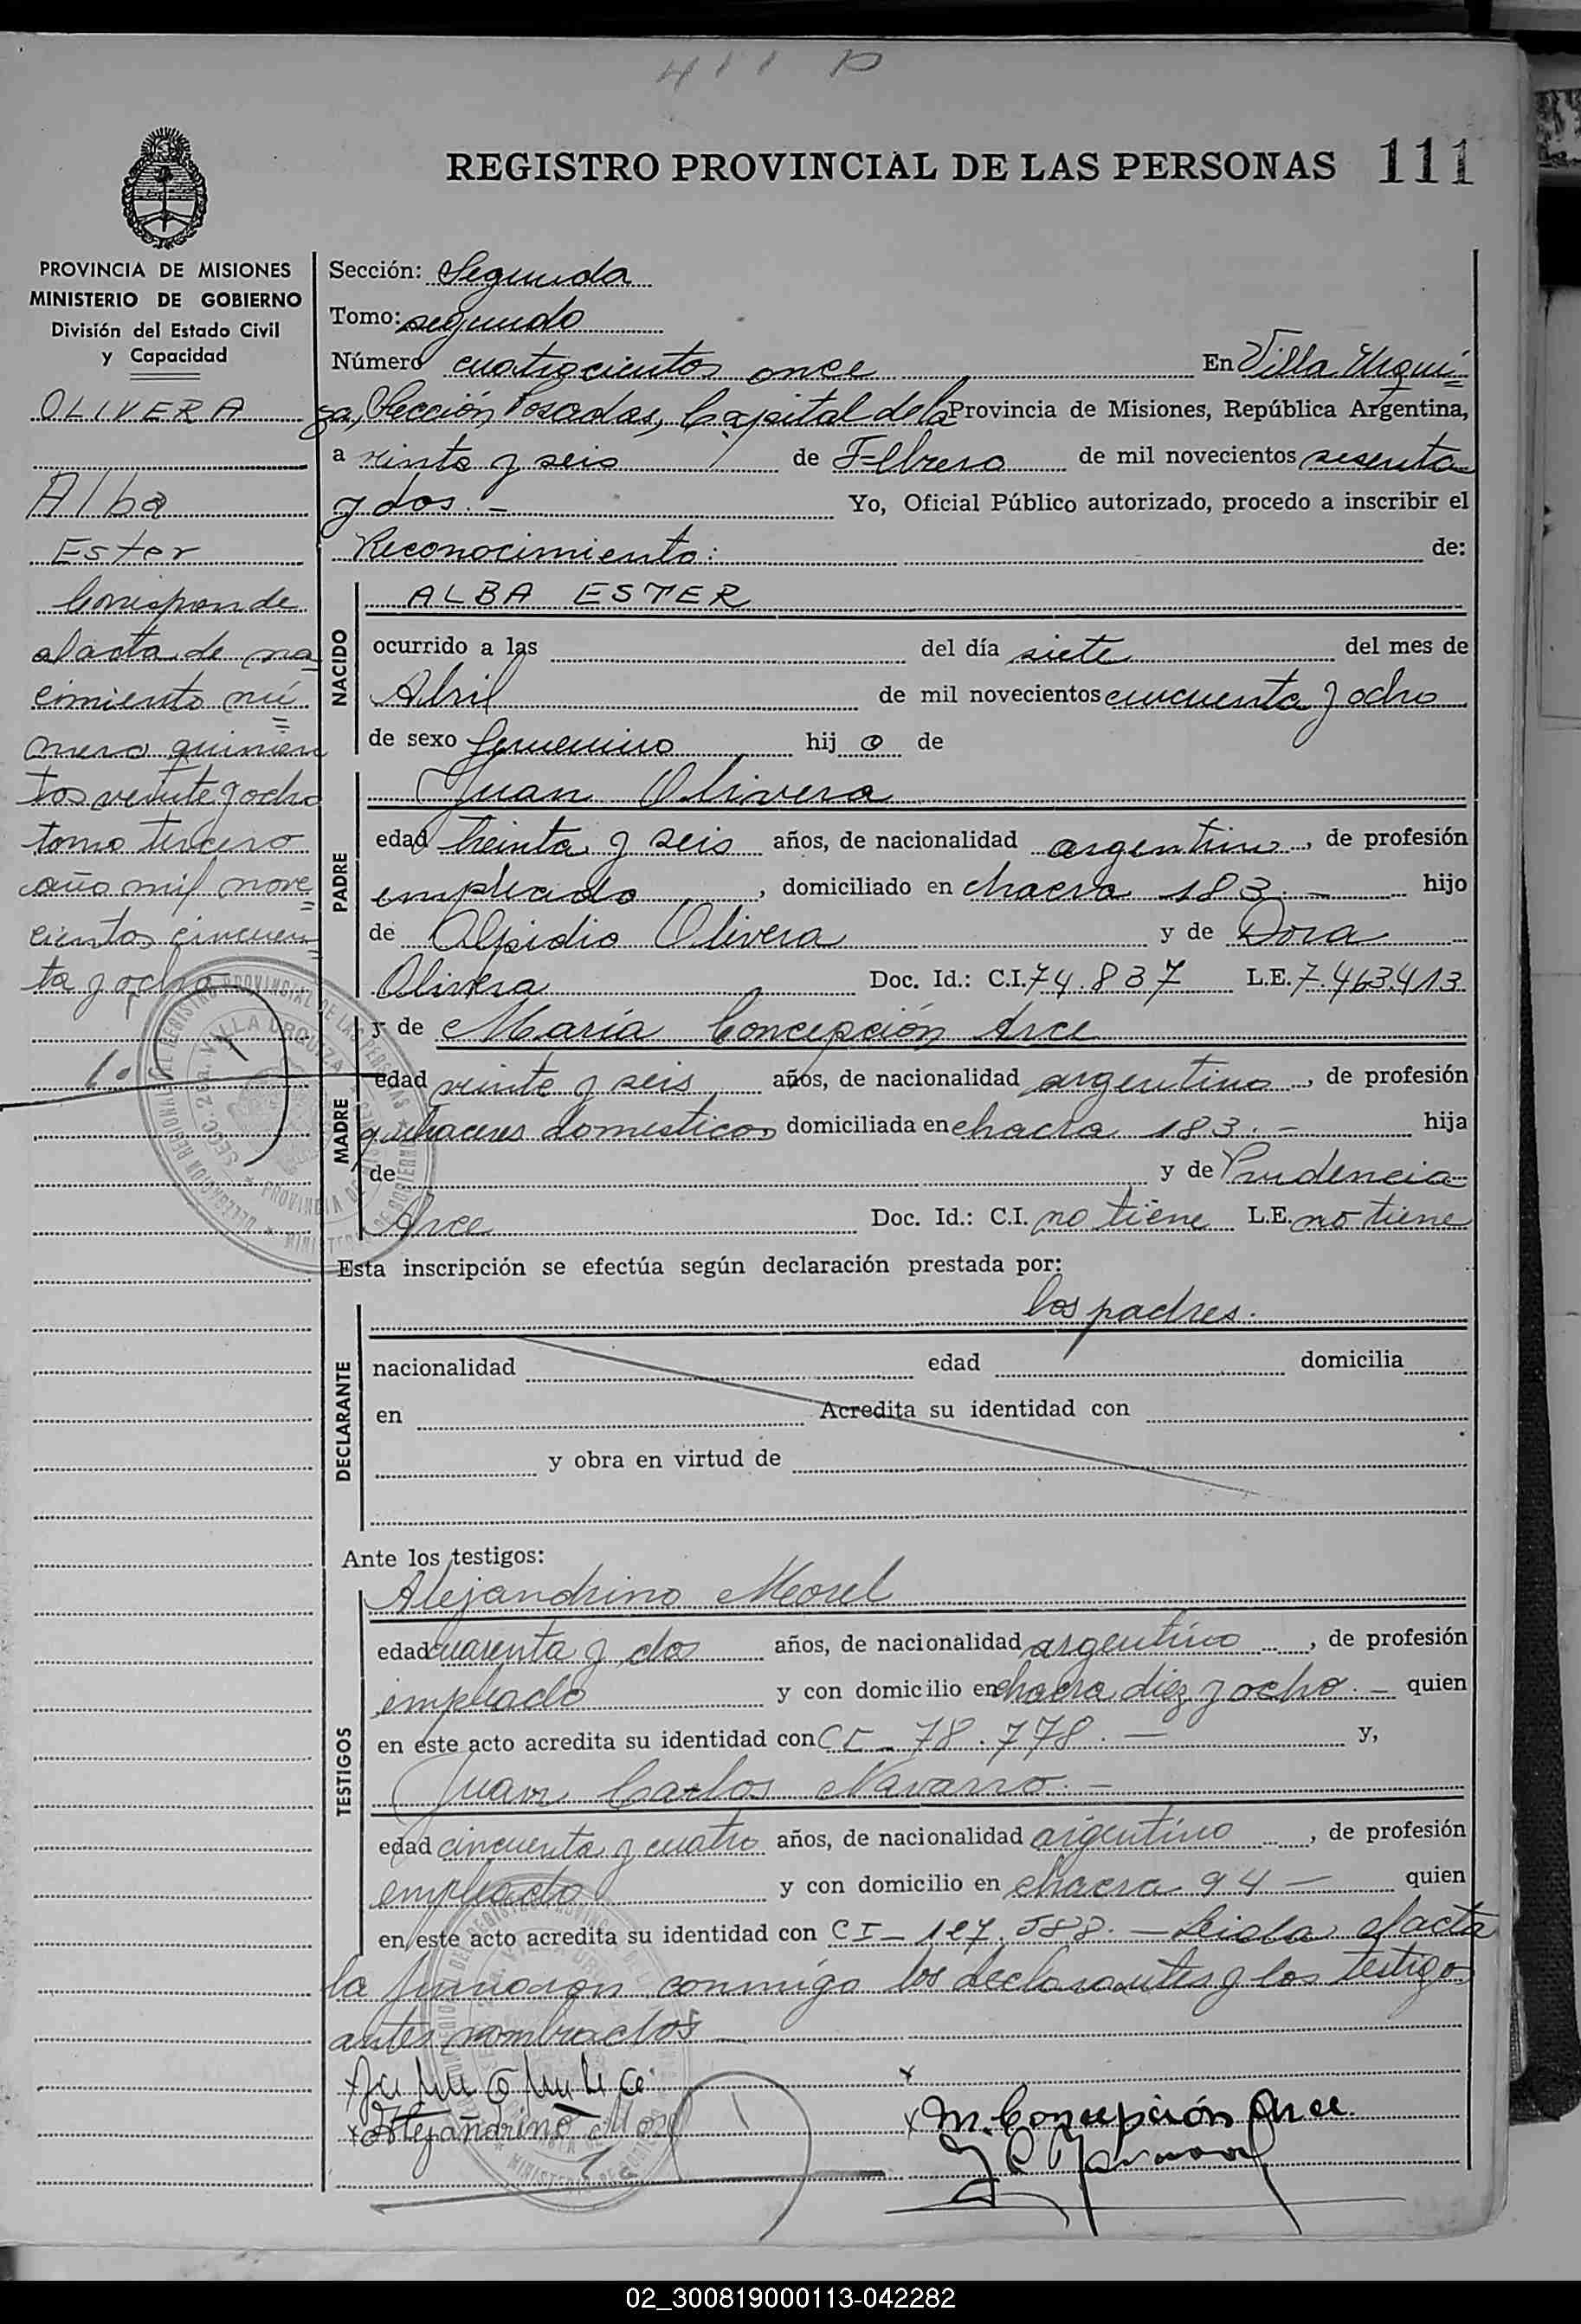 411 D
REGISTRO PROVINCIAL DE LAS PERSONAS 111
PROVINCIA DE MISIONES
MINISTERIO DE GOBIERNO
División del Estado Civil
y Capacidad
OLIVERA
Alba
Ester
Corresponde
al acta de na
cimiento nú
mero quinien
tos veinte y ocho
tomo tercero
año mil nove
cientos cincuen
ta y ocho
Sección: Segunda
Tomo: segundo
Número cuatrocientos once En Villa Urqui
za, Sección Posadas, Capital de la Provincia de Misiones, República Argentina,
a veinte y seis de Febrero de mil novecientos sesenta
y dos.- Yo, Oficial Público autorizado, procedo a inscribir el
Reconocimiento: de:
NACIDO
ALBA ESTER
ocurrido a las del día siete del mes de
Abril de mil novecientos cincuenta y ocho
de sexo femenino hij a de
PADRE
Juan Olivera
edad treinta y seis años, de nacionalidad argentino, de profesión
empleado, domiciliado en chacra 183.- hijo
de Alpidio Olivera y de Dora
Olivera Doc. Id.: C.I. 74.837 L.E. 7.463.413
MADRE
y de María Concepción Arce
edad veinte y seis años, de nacionalidad argentina, de profesión
quehaceres domesticos domiciliada en chacra 183.- hija
de y de Prudencia
Arce Doc. Id.: C.I. no tiene L.E. no tiene
Esta inscripción se efectúa según declaración prestada por:
los padres.
DECLARANTE
nacionalidad edad domicilia
en Acredita su identidad con
y obra en virtud de
Ante los testigos:
TESTIGOS
Alejandrino Morel
edad cuarenta y dos años, de nacionalidad argentino, de profesión
empleado y con domicilio en chacra diez y ocho.- quien
en este acto acredita su identidad con CI- 78.778.- y,
Juan Carlos Navarro.-
edad cincuenta y cuatro años, de nacionalidad argentino, de profesión
empleado y con domicilio en chacra 94 - quien
en este acto acredita su identidad con CI- 127.588.- Leida el acta
la firmaron conmigo los declarantes y los testigos
antes nombrados
x Alejandrino Morel
x M. Concepción Arce
02_300819000113-042282